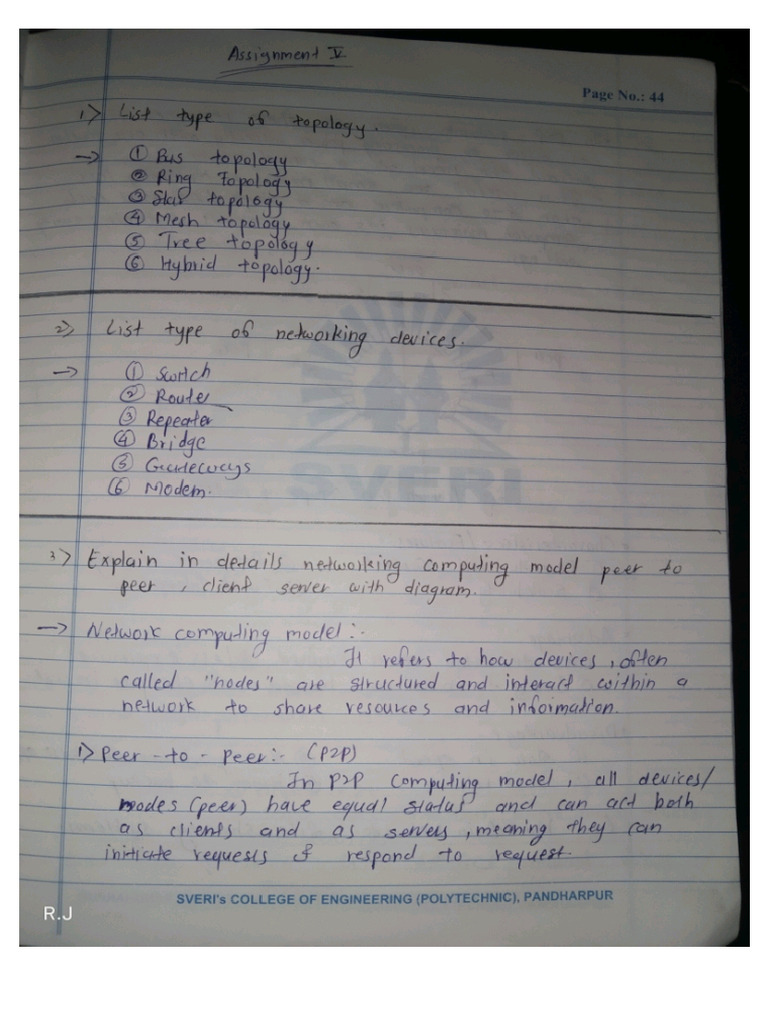 Assignment V
Page No.: 44
1> List type of topology.
→ ① Bus topology
② Ring topology
③ Star topology
④ Mesh topology
⑤ Tree topology
⑥ Hybrid topology.
2> List type of networking devices.
→ ① Switch
② Router
③ Repeater
④ Bridge
⑤ Gateways
⑥ Modem.
3> Explain in details networking computing model peer to
peer, client server with diagram.
→ Network computing model:-
It refers to how devices, often
called "nodes" are structured and interact within a
network to share resources and information.
1> Peer-to-Peer:- (P2P)
In P2P computing model, all devices/
nodes (peer) have equal status and can act both
as clients and as servers, meaning they can
initiate requests & respond to request.
SVERI
SVERI's COLLEGE OF ENGINEERING (POLYTECHNIC), PANDHARPUR
R.J